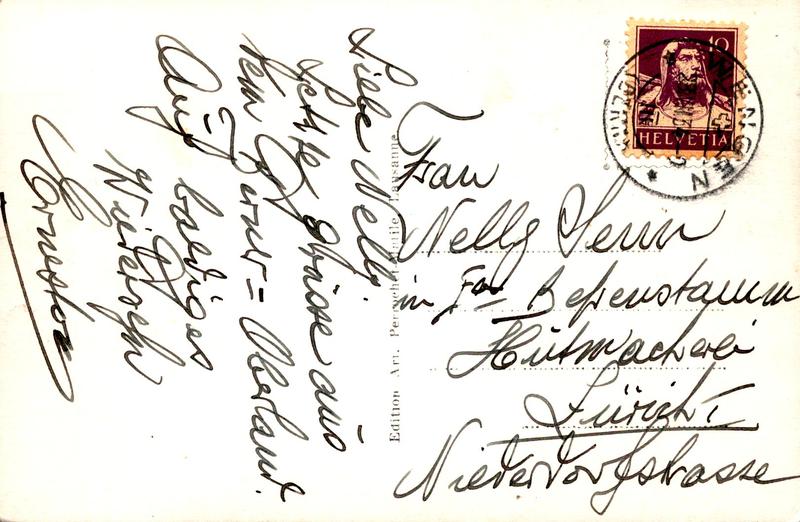 Liebe Nelly.
Letzte Grüsse aus
dem Berner-Oberland.
Auf baldiges
Wiedersehn
Ernesto
Edition Art. Perrochet-Matile, Lausanne
10
HELVETIA
WENGEN
Frau
Nelly Senn
in Fa Besenstamm
Hutmacherei
Zürich I
Niederdorfstrasse